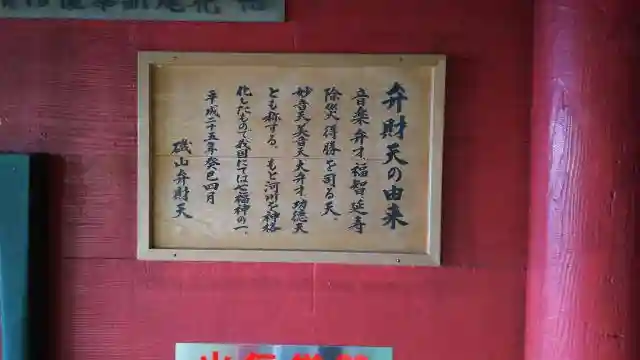 弁財天の由来
音楽弁才福智延寿
除災得勝を司る天。
妙音天美音天大弁才功徳天
とも称する。もと河川を神格
化したもので我国にては七福神の一。
平成二十五年癸巳四月
磯山弁財天